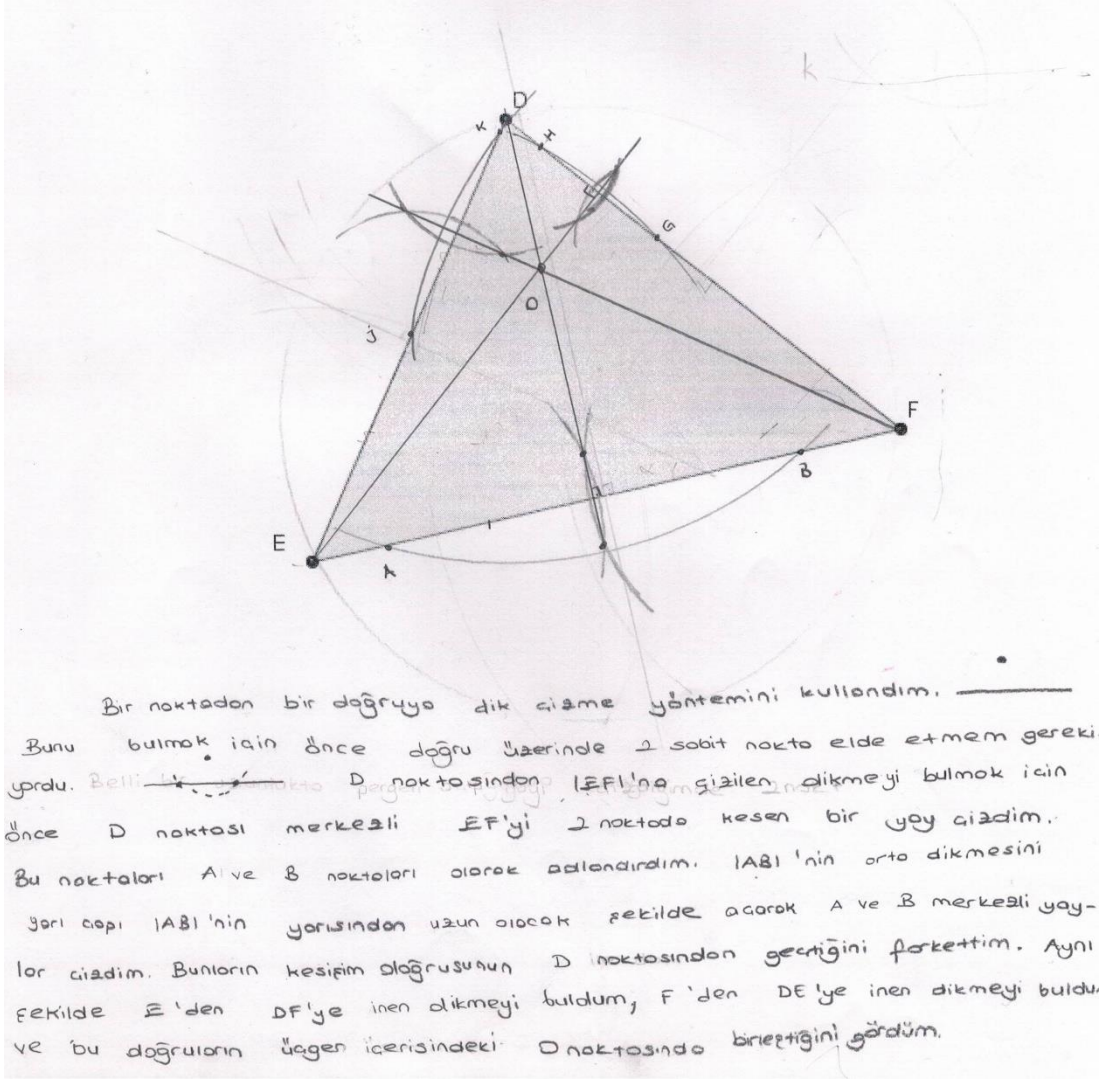 k
D
K
H
G
O
J
F
B
E
A
Bir noktadan bir doğruya dik çizme yöntemini kullandım.
Bunu bulmak için önce doğru üzerinde 2 sabit nokta elde etmem gereki-
yordu. D noktasından |EF|'na çizilen dikmeyi bulmak için
önce D noktası merkezli EF'yi 2 noktada kesen bir yay çizdim.
Bu noktaları A ve B noktaları olarak adlandırdım. |AB| 'nin orta dikmesini
yarı çapı |AB| 'nin yarısından uzun olacak şekilde açarak A ve B merkezli yay-
lar çizdim. Bunların kesişim doğrusunun D noktasından geçtiğini farkettim. Aynı
şekilde E 'den DF'ye inen dikmeyi buldum, F 'den DE 'ye inen dikmeyi buldu
ve bu doğruların üçgen içerisindeki O noktasında birleştiğini gördüm.